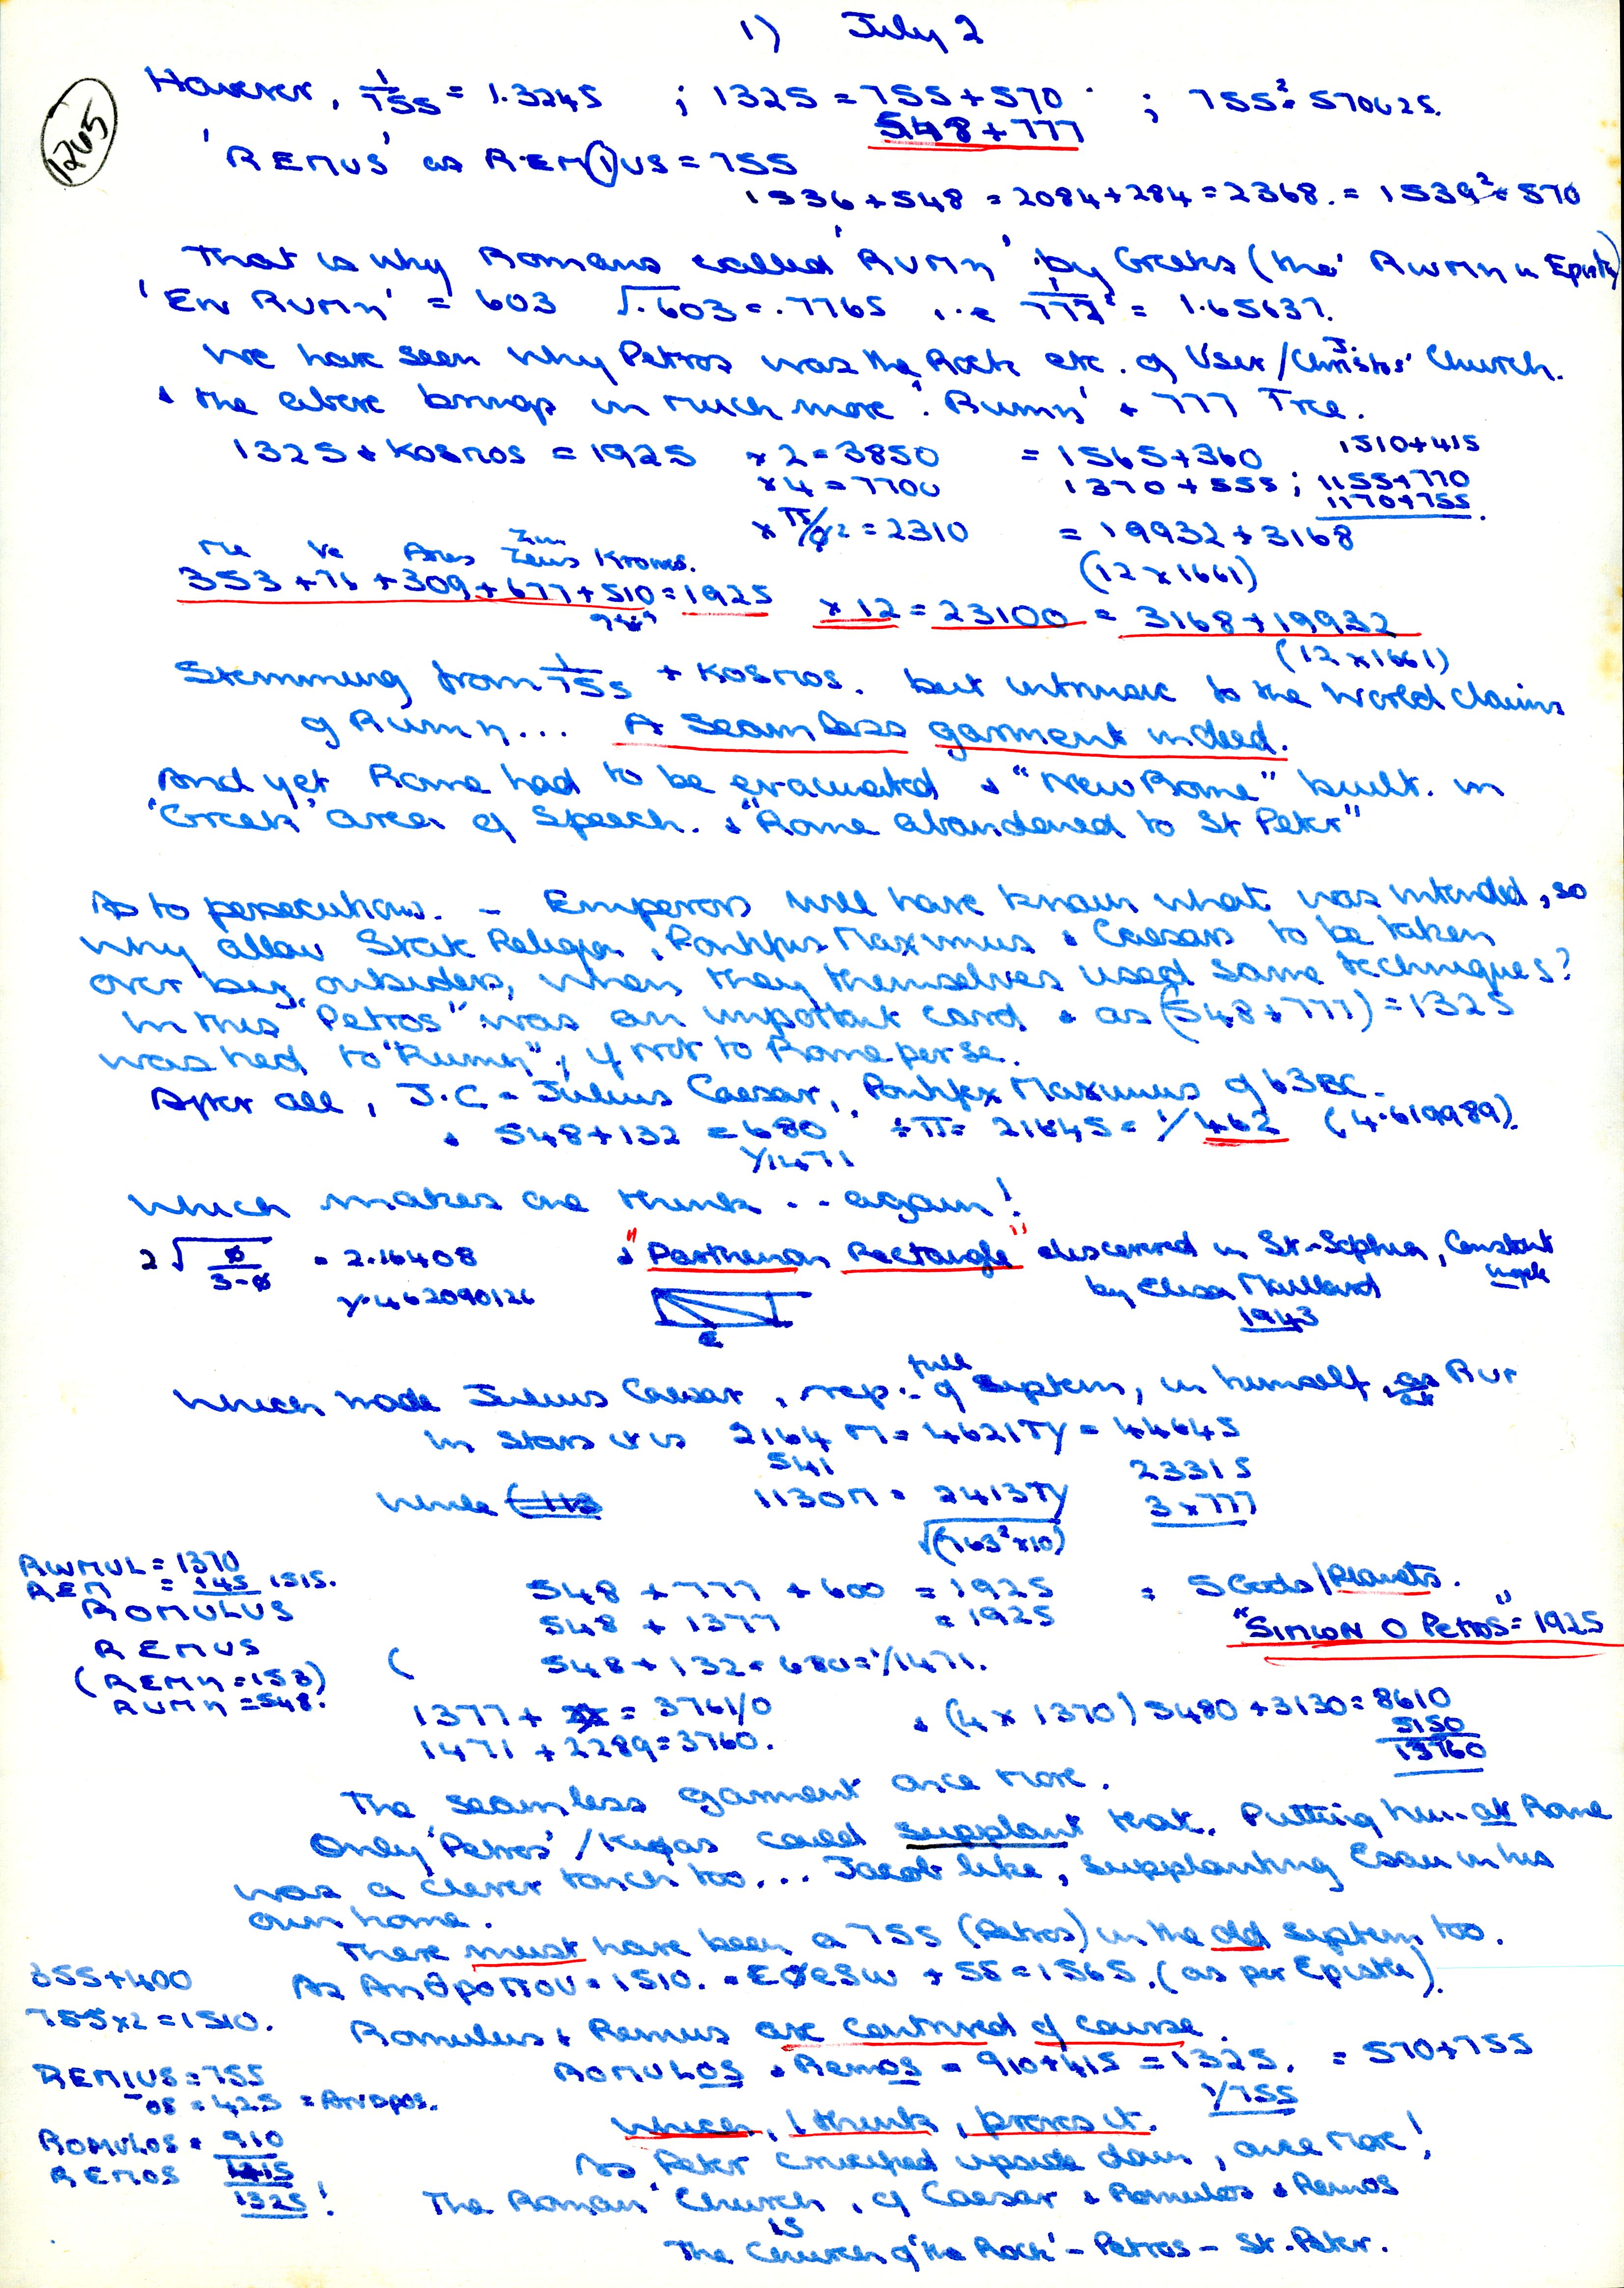 1) July 2
1265
However, 1/755 = 1.3245 ; 1325 = 755+570 ; 755² = 570025.
548+777
'REMUS' as REM(I)US = 755
1536+548 = 2084+284 = 2368. = 1539²+570
That is why Romans called 'Rumn' by Greeks (the Rwmn in Epistle)
'En Rumn' = 603 √.603 = .7765 i.e 1/777² = 1.65637.
We have seen why Petros was the Rock etc. of User/J. Christos' Church.
+ the above brings in much more. 'Rumn' + 777 Tree.
1325 + Kosmos = 1925 x 2 = 3850 = 1565+360 1510+415
x 4 = 7700 1370 + 555 ; 1155+770
1170+755.
x = 2310 = 19932+3168
(12 x 1661)
Me Ve Ares Zeus Kronos.
353 +76 +309 +677 +510 = 1925 x 12 = 23100 = 3168+19932
(12 x 1661)
Stemming from 1/755 + Kosmos. but intrinsic to the World claims
of Rumn... A Seamless garment indeed.
And yet Rome had to be evacuated + "New Rome" built in
'Greek' area of Speech. + "Rome abandoned to St Peter"
As to persecutions. - Emperors will have known what was intended, so
why allow State Religion, Pontifus Maximus + Caesars to be taken
over by outsiders, when they themselves used same techniques?
In this "Petros" was an important card + as (548+777) = 1325
was tied to "Rumn", if not to Rome per se.
After all, J.C. = Julius Caesar, Pontifex Maximus of 63BC.
+ 548+132 = 680 ÷ π = 21645 = 1/462 (4.619989).
1/1471
Which makes one think .. again!
2 √ ø/3-ø = 2.16408 + "Parthenon Rectangle" discovered in St-Sophia, Constantinople
1/.462090126 by Elisa Maillard
1943
Which made Julius Caesar, rep. of full System, in himself, as Rur
In Stars it is 2164 M = 4621TY = 44645
541 23315
while 1130M = 2413TY 3 x 777
√(763² x 10)
RWMUL = 1370
REM = 145 1515.
ROMULUS
REMUS
(REMN = 153)
RUMN = 548.
548 + 777 + 600 = 1925 = 5 Gods/Planets.
548 + 1377 = 1925 "SIMON O Petros" = 1925
( 548 + 132 = 680 = 1/1471.
1377 + = 3761/0 + (4 x 1370) 5480 + 3130 = 8610
1471 + 2289 = 3760. 5150
13760
The seamless garment once more.
Only 'Petros' / Kefas could supplant that. Putting him at Rome
was a clever touch too... Jacob like, supplanting Esau in his
own home.
There must have been a 755 (Petros) in the old System too.
655+400 As Anθρωπου = 1510. = EφeSw + 55 = 1565. (as per Epistle).
755x2 = 1510. Romulus + Remus are contrived of course.
REMIUS = 755 ROMULOS + Remos = 910+415 = 1325. = 570+755
os = 425 = 1/755
Which, I think, proves it.
ROMULOS = 910
REMOS 415
1325!
As Peter crucified upside down, once more!
The Roman 'Church, of Caesar + Romulos + Remos
is
The Church of 'the Rock' - Petros - St. Peter.